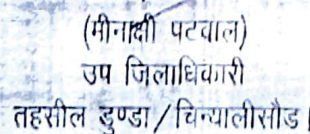 (मीनाक्षी पटवाल)
उप जिलाधिकारी
तहसील डुण्डा/चिन्यालीसौड।